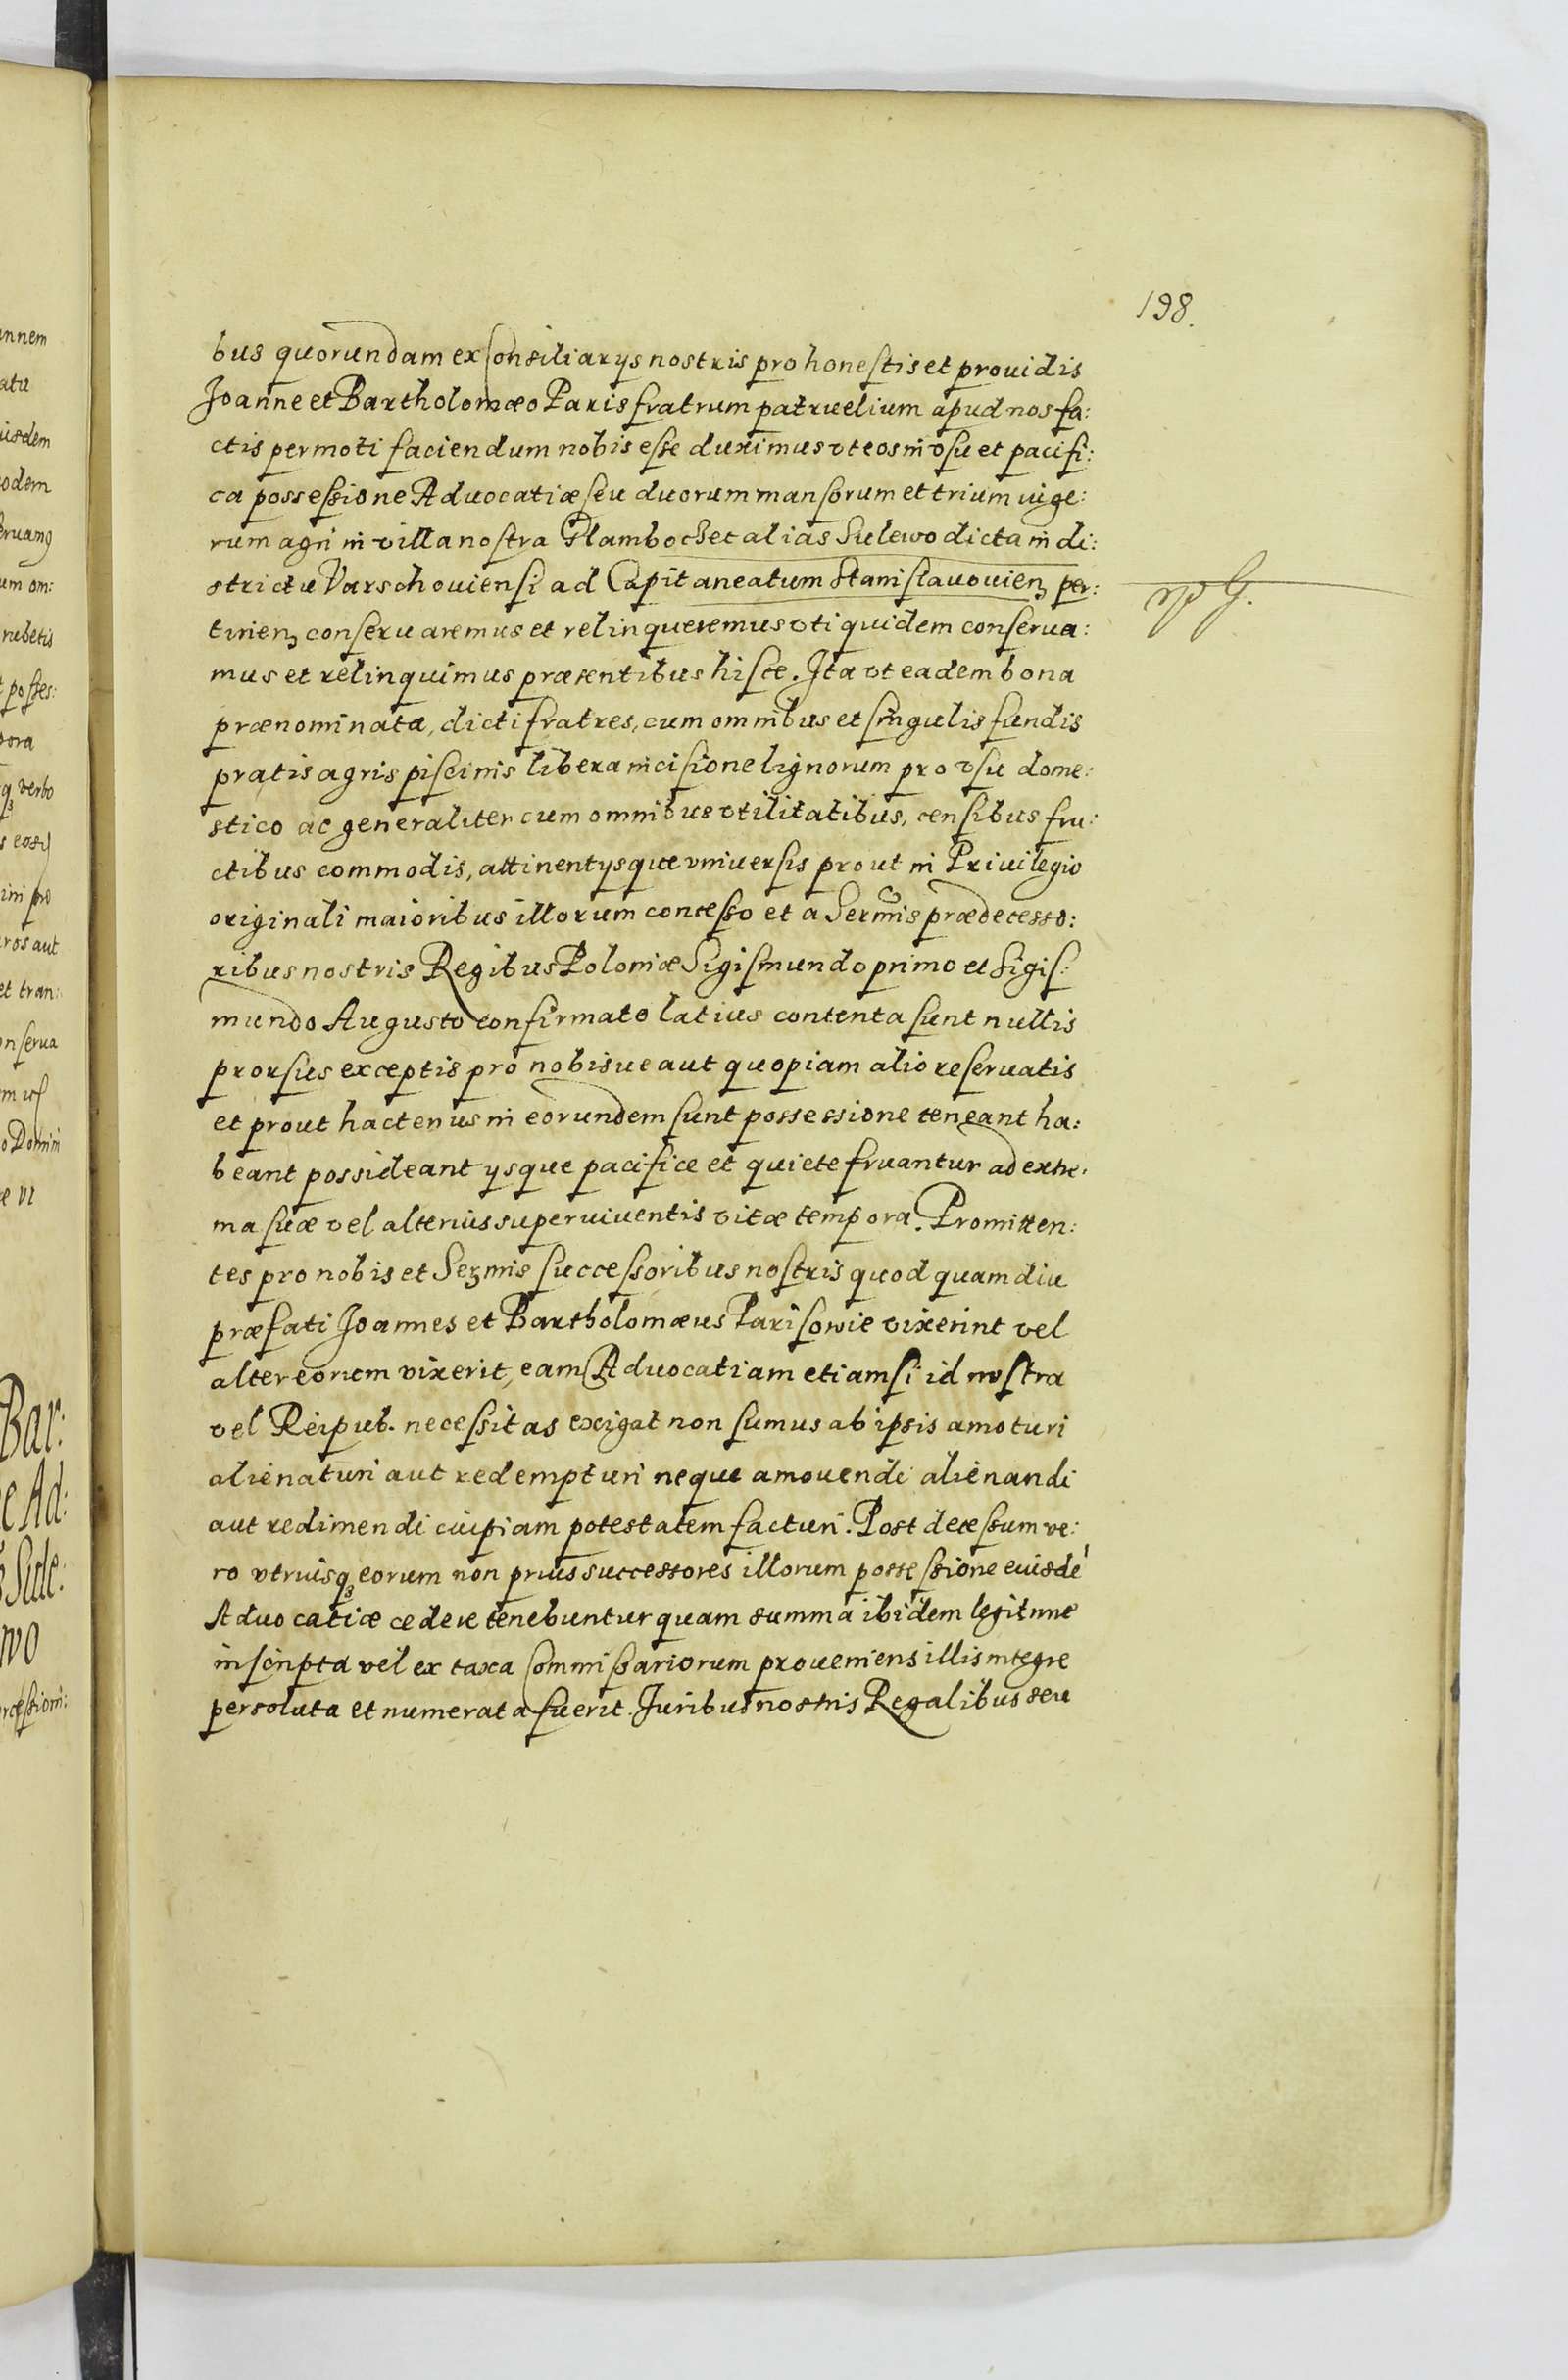 198.
bus quorundam ex Consiliarys nostris pro honestis et prouidis
Joanne et Bartholomæo Paris fratrum patruelium apud nos fa:
ctis permoti faciendum nobis esse duximus vt eos in vsu et pacifi:
ca possessione Aduocatiæ seu duorum mansorum et trium iuge:
rum agri in villa nostra alias Sulewo dicta in di:
strictu Varschouiensi ad Capitaneatum Stanislauouien per:
tinen conseruaremus et relinqueremus vti quidem conserua:
mus et relinquimus præsentibus hisce. Ita vt eadem bona
prænominata, dicti fratres, cum omnibus et singulis fundis
pratis agris piscinis libera incisione lignorum pro vsu dome:
stico ac generaliter cum omnibus vtilitatibus, censibus fru:
ctibus commodis, attinentysque vniuersis prout in Priuilegio
originali maioribus illorum concesso et a Sermis prædecesso:
ribus nostris Regibus Poloniæ Sigismundo primo et Sigis:
mundo Augusto confirmato latius contenta sunt nullis
prorsus exceptis pro nobisue aut quopiam alio reseruatis
et prout hactenus in eorundem sunt possessione teneant ha:
beant possideant ysque pacifice et quiete fruantur ad extre:
ma suæ vel alterius superuiuentis vitæ tempora. Promitten:
tes pro nobis et Sermis successoribus nostris quod quamdiu
præfati Joannes et Bartholomæus Parisowie vixerint vel
alter eorum vixerit, eam Aduocatiam etiamsi id nostra
vel Reipub. necessitas exigat non sumus ab ipsis amoturi
alienaturi aut redempturi neque amouendi alienandi
aut redimendi cuipiam potestatem facturi. Post decessum ve:
ro vtriusq eorum non prius successores illorum possessione eiusdē
Aduocatiæ cedere tenebuntur quam summa ibidem legitime
inscripta vel ex taxa Commissariorum proueniens illis integre
persoluta et numerata fuerit. Juribus nostris Regalibus seu